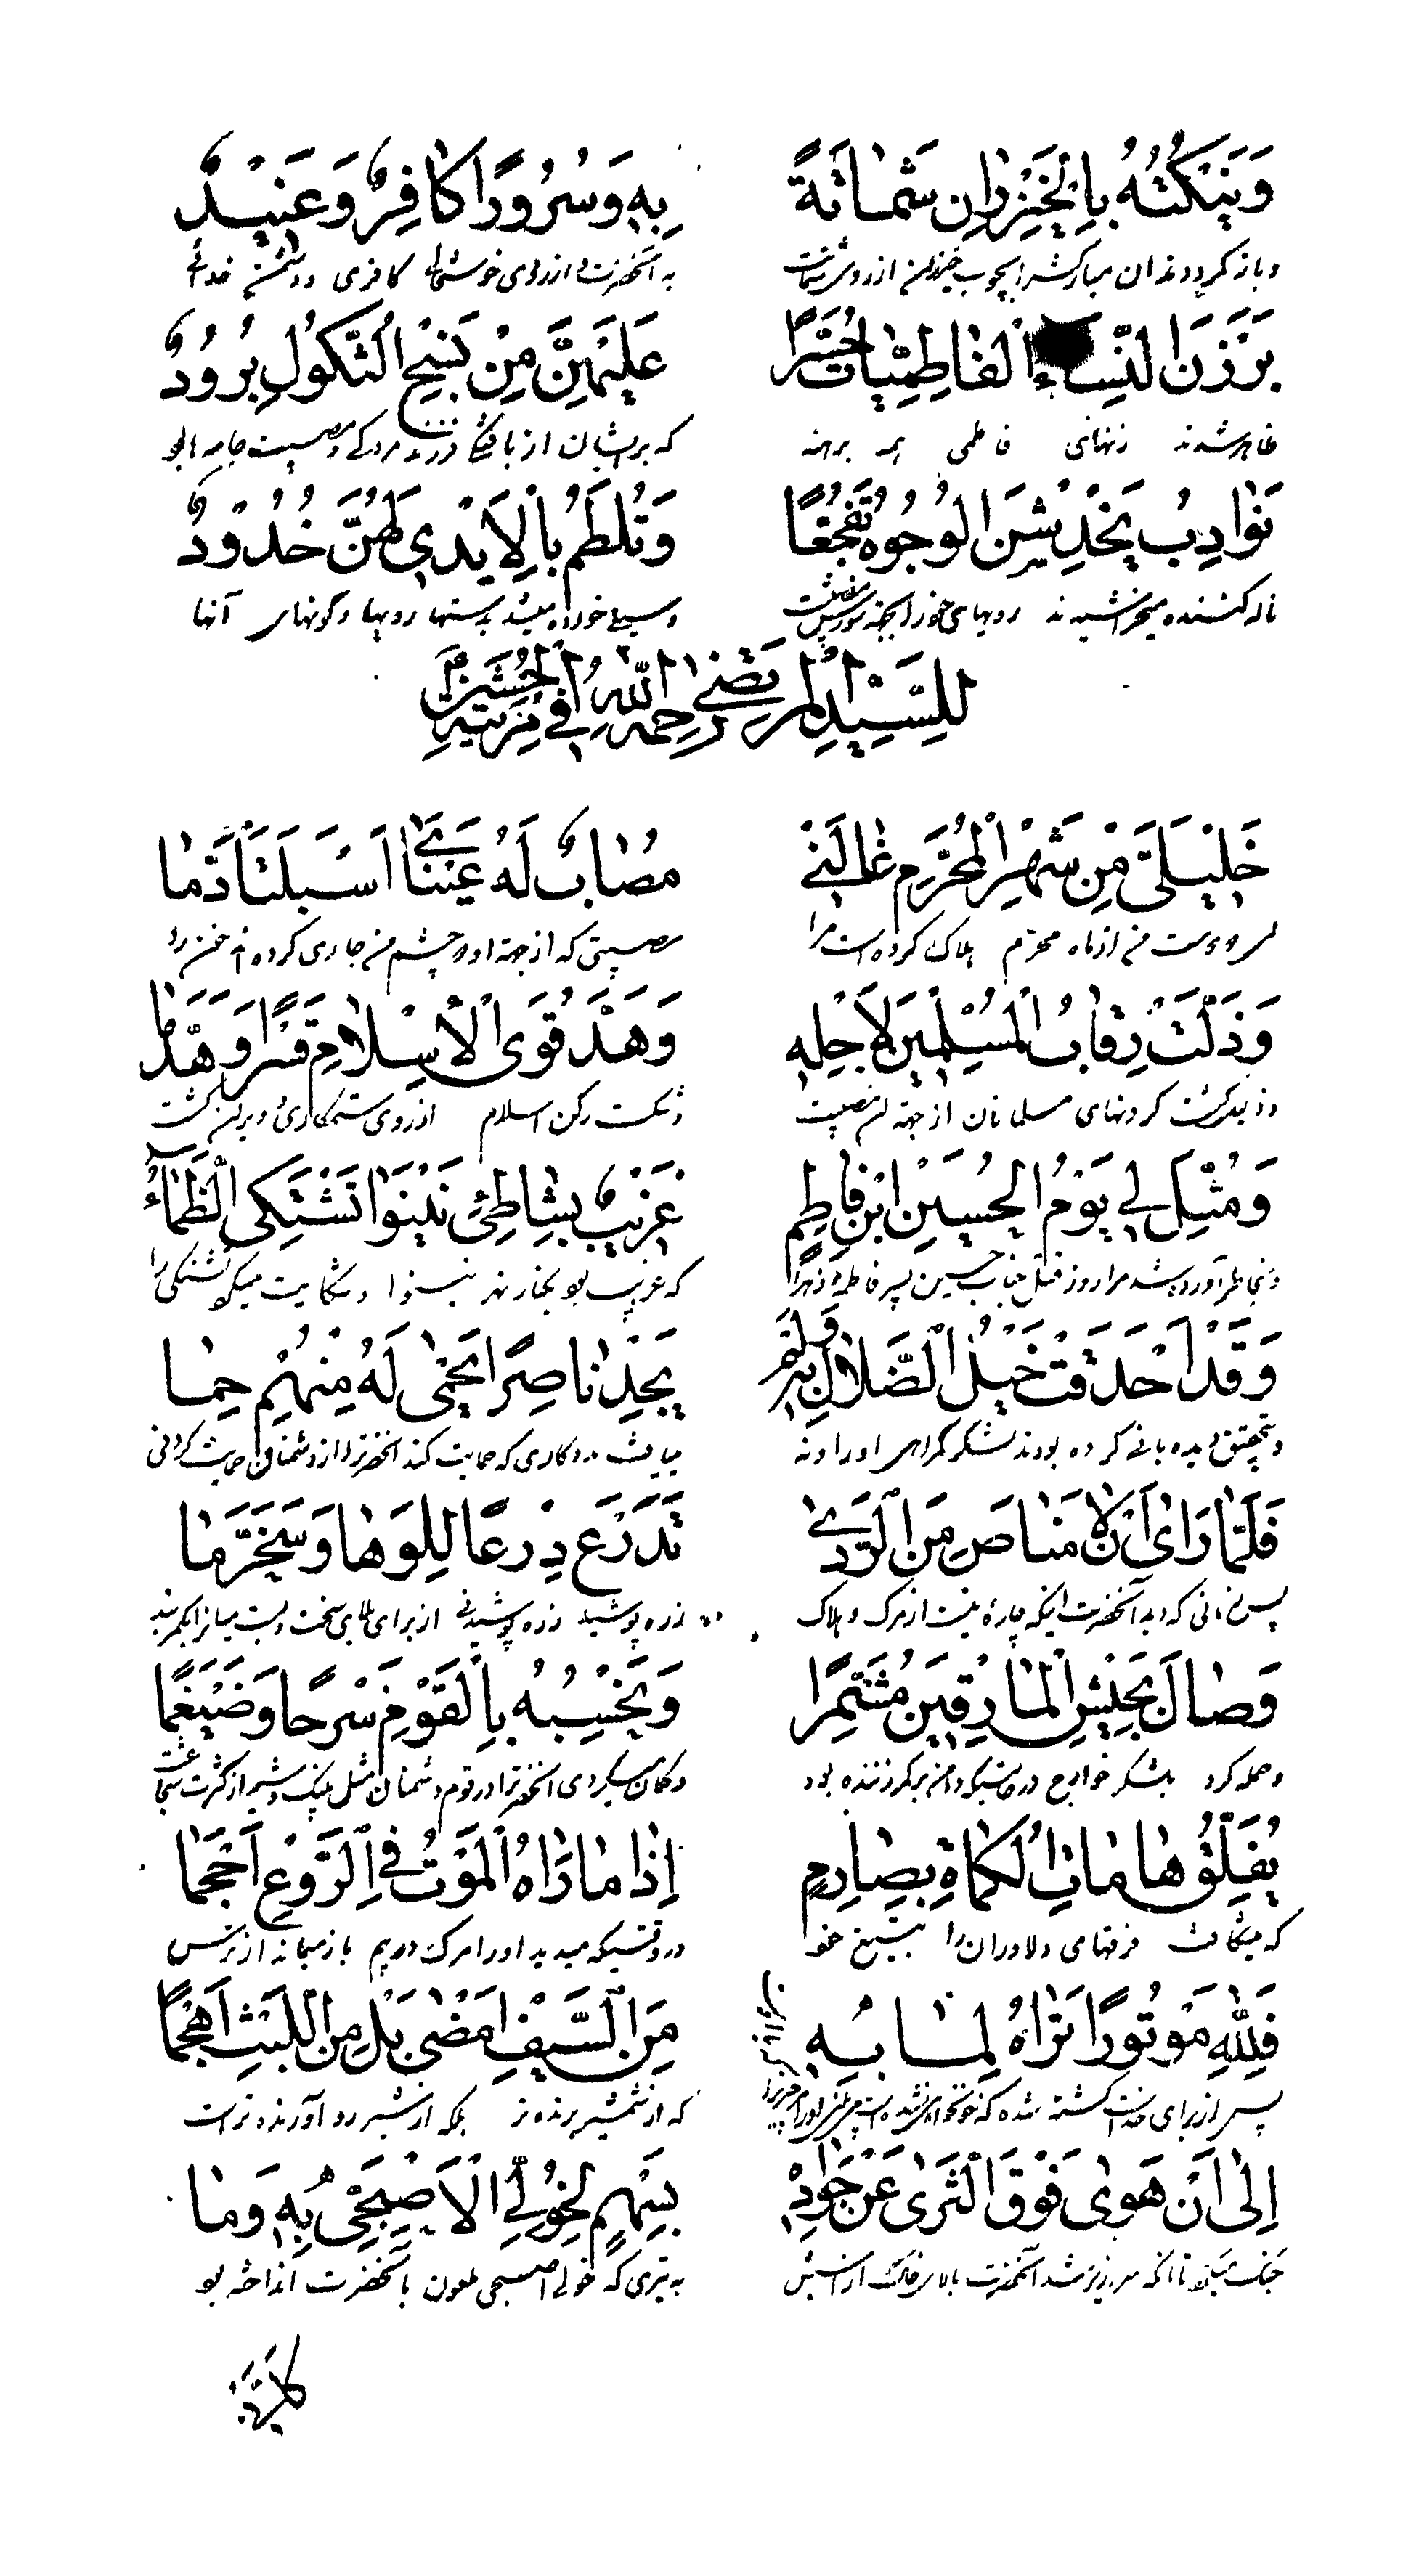 وَيَنْكُتُهُ بِالْخَيْزِرانِ شَماتَةً بِهِ وَسُرُورًا كافِرٌ وَعَنِيدٌ
به آنحضرت و از روی خوشحالی کافری و دشمن خدائی
بَرَزْنَ النِّساءُ الفاطِمِيّاتُ حُسَّرًا عَلَيْهِنَّ مِنْ نَسْجِ الثَّكُولِ بُرُودٌ
ظاهر شدند زنهای فاطمی همه برهنه که بر ایشان از بافتگی فرزند مرده کی و مصیبت جامه ها بود
نَوادِبُ يَخْدِشْنَ الوُجُوهَ تَفَجُّعًا وَتُلْطَمُ بِالاَيْدِي لَهُنَّ خُدُودٌ
ناله کننده میخراشیدند رویهای خود را وسیلی خورده میشد بدستها رویها و گونهای آنها
لِلسَّيِّدِ المُرتَضى رَحِمَهُ اللهُ في مَرثِيَةِ الحُسَيْنِ
خَلِيلَيَّ مِن شَهْرِ المُحَرَّمِ غالَني مُصابٌ لَهُ عَيْنايَ اَسْبَلَتا دَما
ای دو دوست من از ماه محرّم هلاک کرده است مرا مصیبتی که از جهة او دو چشم من جاری کرده اند خون را
وَذَلَّتْ رِقابُ المُسْلِمينَ لاَجْلِهِ وَهَدَّ قُوَى الاْسْلامِ قَسْرًا وَهَدَّما
وذلیل گشت گردنهای مسلمانان از جهة این مصیبت و شکست رکن اسلام از روی ستمکاری و ویران گشت
وَمُثِّلَ لي يَوْمُ الحُسَيْنِ ابْنِ فاطِمٍ غَريبٌ بِشاطِئِ نَيْنَوا تَشْتَكي الظَّماءُ
و بخاطر آورده شد مرا روز قتل جناب حسین پسر فاطمهٔ زهرا که غریب بود بکنار نهر نینوا و شکایت میکرد تشنگی را
وَقَدْ اَحْدَقَتْ خَيْلُ الضَّلالِ بِهِ وَلَمْ يَجِدْ ناصِرًا يَحْمى لَهُ مِنْهُمِ حِما
و بتحقیق دیده بانی کرده بودند لشکر گمراهی او را و نه مییافت مددکاری که حمایت کند آنحضرت را از دشمنان حمایت کردنی
فَلَمّا رَاى اَنْ لا مَناصَ مِنَ الرَّدى تَدَرَّعَ دِرْعًا لِلِوَها وَتَحَزَّما
پس زمانی که دید آنحضرت اینکه چارهٔ نیست از مرگ و هلاک زره پوشید زره پوشیدنی از برای بلای سخت و بست میانرا بکمربند
وَصالَ بِجَيْشِ المارِقينَ مُشَمِّرًا وَيَحْسِبُهُ بِالقَوْمِ سَرْحا وَضَيْغَما
و حمله کرد بلشکر خوارج در حالتیکه دامن بر کمر زننده بود و گمان میکردی آنحضرترا در قوم دشمنان مثل پلنگ و شیر از کثرت شجاعت
يُفَلِّقُ هاماتِ الكُماةِ بِصارِمٍ اِذا ما رَاهُ المَوْتُ فِي الرَّوْعِ اَحْجَما
که میشکافت فرقهای دلاوران را بتیغ خود در وقتیکه میدید او را مرگ در بیم باز میماند از ترس
فَلِلّهِ مَوْتُورًا تَراهُ لِما بِهِ مِنَ السَّيْفِ اَمْضى بَلْ مِنَ اللَّيْثِ اَهْجَما
پس از برای خداست کشته شده که که از شمشیر برنده تر بلکه از شیر رو آورنده تر است
اِلى اَنْ هَوى فَوْقَ الثَّرى عَنْ جَوادِهِ بِسَهْمٍ لِخَوْلِي الاَصْبَحِيِّ بِهِ وَما
تا آنکه سرازیر شد آنحضرت بالای خاک از اسبش به تیری که خولی اصبحی ملعون بآنحضرت انداخته بود